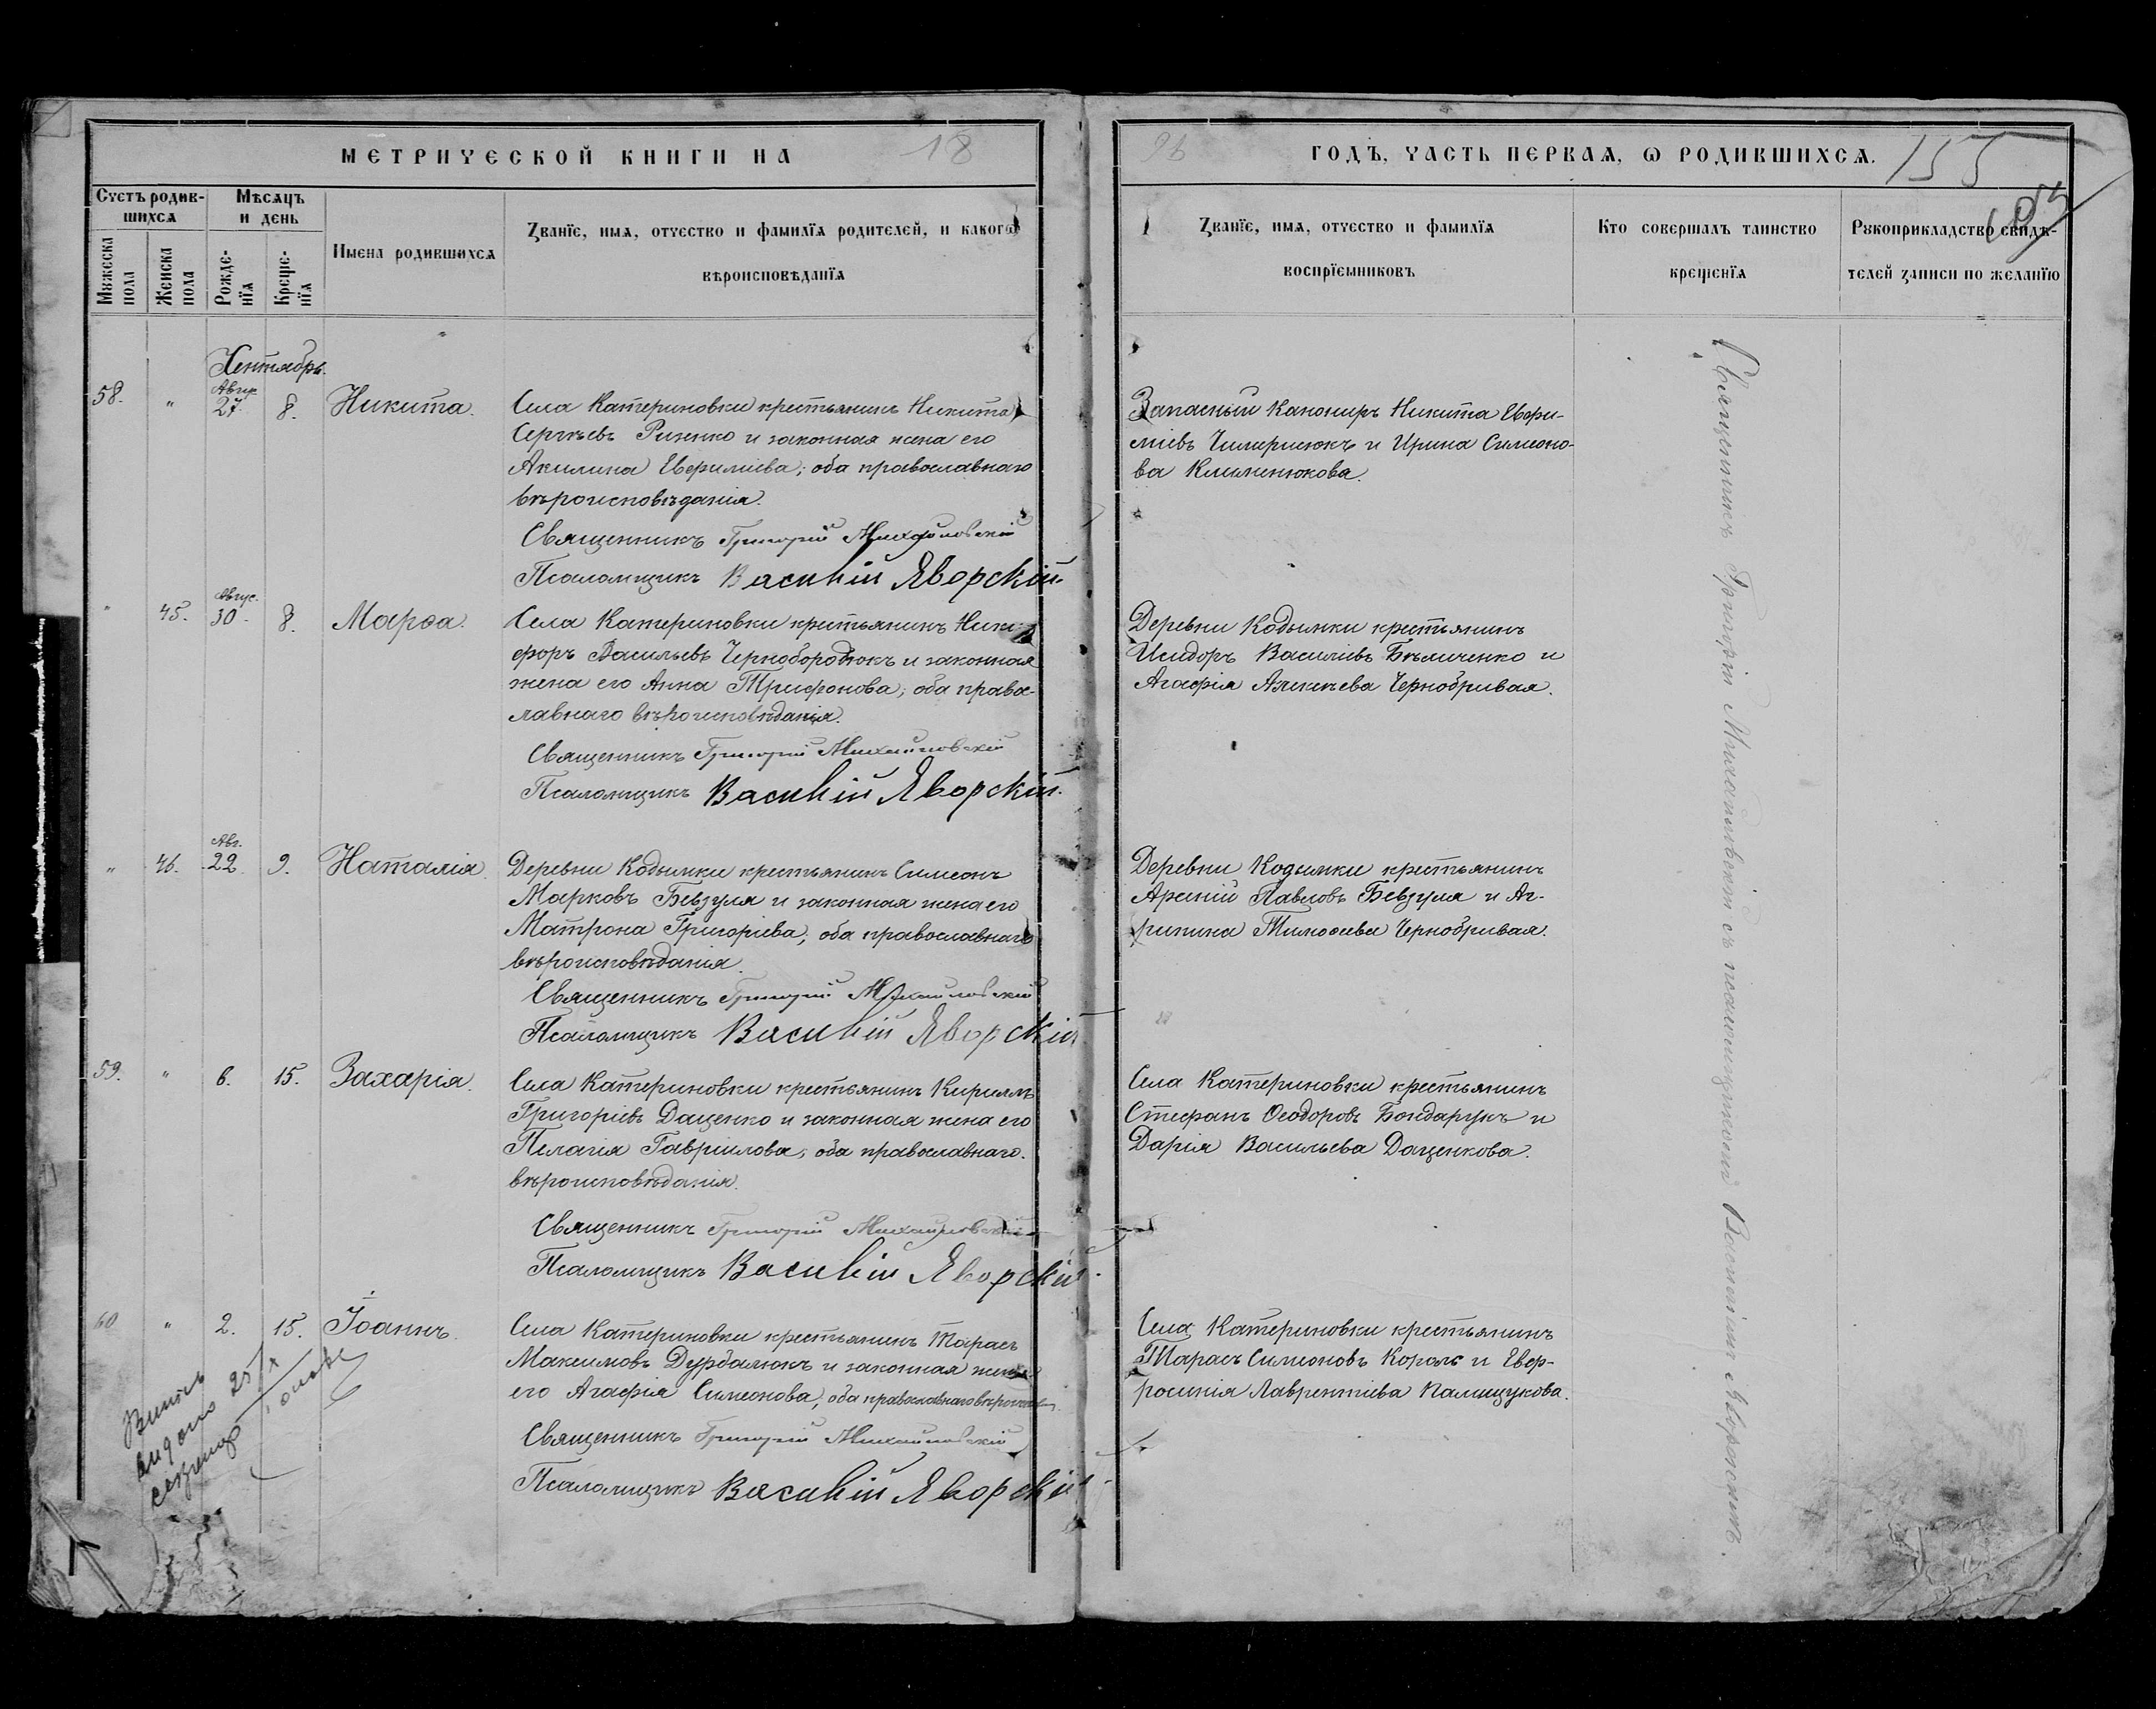 МЕТРИЧЕСКОЙ КНИГИ НА 18
96 ГОДЪ, ЧАСТЬ ПЕРВАЯ, Ѡ РОДИВШИХСѦ.
155
Счетъ родив-
шихсѧ
Мѣсяцъ
и день
Мꙋжеска
пола
Женска
пола
Рожде-
нїѧ
Креще-
нїѧ
Имена родившихсѧ
Званїе, имѧ, отчество и фамилїѧ родителей, и какогѡ
вѣроисповѣданїѧ
Званїе, имѧ, отчество и фамилїѧ
воспрїемниковъ
Кто совершалъ таинство
крещенїѧ
Рꙋкоприкладство свидѣ-
телей записи по желанїю
Сентябрь.
58. " Авгус. 27. 8. Никита.
Села Катериновки крестьянинъ Никита
Сергѣевъ Ризенко и законная жена его
Акилина Евфиміева; оба православнаго
вѣроисповѣданія.
Священникъ Григорій Михайловскій
Псаломщикъ Василій Яворскій.
Запасный Канониръ Никита Евфи-
міевъ и Ирина Симеоно-
ва Клименюкова.
" 45. Авгус. 30. 8. Марѳа.
Села Катериновки крестьянинъ Ники-
форъ Васильевъ Чернобородюкъ и законная
жена его Анна Трифонова; оба право-
славнаго вѣроисповѣданія.
Священникъ Григорій Михайловскій
Псаломщикъ Василій Яворскій.
Деревни Кодымки крестьянинъ
Исидоръ Василіевъ Бѣличенко и
Агафія Алексѣева Чернобривая.
" 46. Авг. 22. 9. Наталія.
Деревни Кодымки крестьянинъ Симеонъ
Марковъ Бевзуля и законная жена его
Матрона Григоріева; оба православнаго
вѣроисповѣданія.
Священникъ Григорій Михайловскій
Псаломщикъ Василій Яворскій
Деревни Кодымки крестьянинъ
Арсеній Павловъ Бевзуля и Аг-
рипина Тимоѳева Чернобривая.
59. " 6. 15. Захарія.
Села Катериновки крестьянинъ Кириллъ
Григоріевъ Даценко и законная жена его
Пелагія Гавріилова; оба православнаго
вѣроисповѣданія.
Священникъ Григорій Михайловскій
Псаломщикъ Василій Яворскій.
Села Катериновки крестьянинъ
Стефанъ Ѳеодоровъ Бондарукъ и
Дарія Васильева Даценкова.
60 " 2. 15. Іоаннъ.
Села Катериновки крестьянинъ Тарасъ
Максимовъ Дурбалюкъ и законная жена
его Агафія Симеонова; оба православнаго
Священникъ Григорій Михайловскій
Псаломщикъ Василій Яворскій.
Села Катериновки крестьянинъ
Тарасъ Симеоновъ Король и Евф-
росинія Лаврентіева Палищукова.
Священникъ Григорій Михайловскій съ псаломщикомъ Василіемъ Яворскимъ.